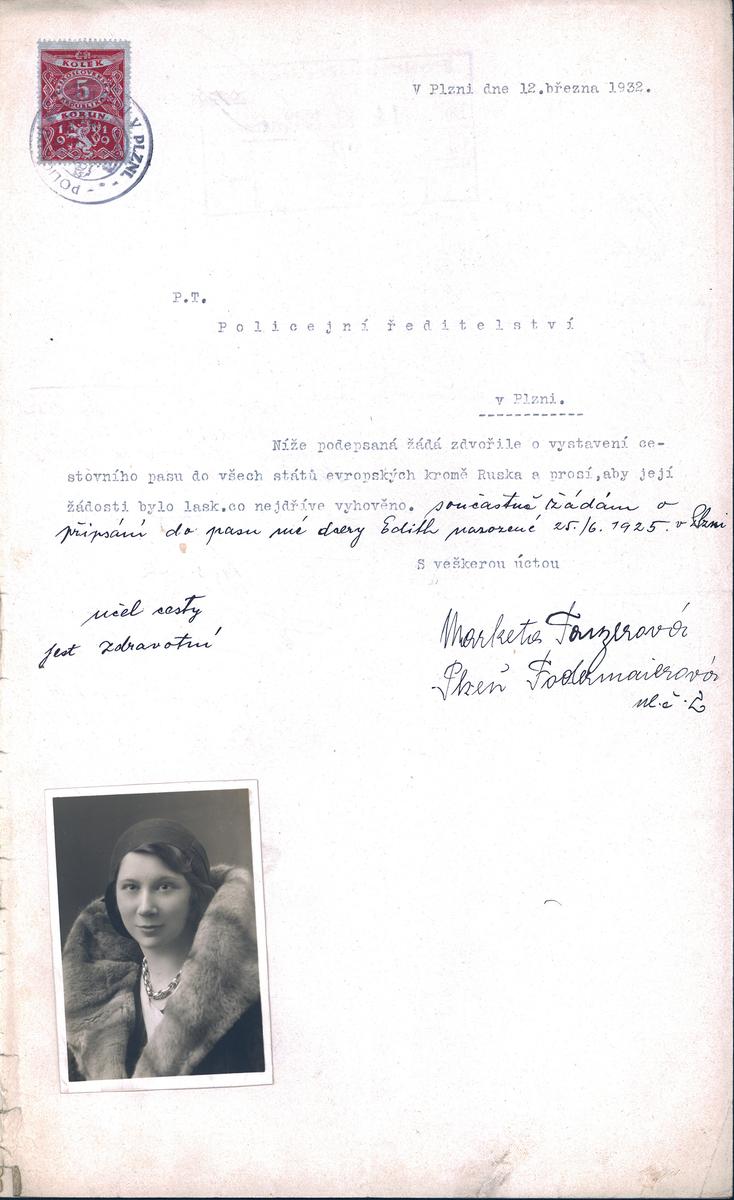 KOLEK
ČESKOSLOVENSKÁ
5
REPUBLIKA
KORUN
1919
V PLZNI
V Plzni dne 12.března 1932.
P.T.
Policejní ředitelství
v Plzni.
Níže podepsaná žádá zdvořile o vystavení ce-
stovního pasu do všech států evropských kromě Ruska a prosí,aby její
žádosti bylo lask.co nejdříve vyhověno. současně žádám o
připsání do pasu mé dcery Edith narozené 25./6. 1925. v Plzni
S veškerou úctou
účel cesty
jest zdravotní
Marketa
Plzeň Fodermaierová
ul. č. 2